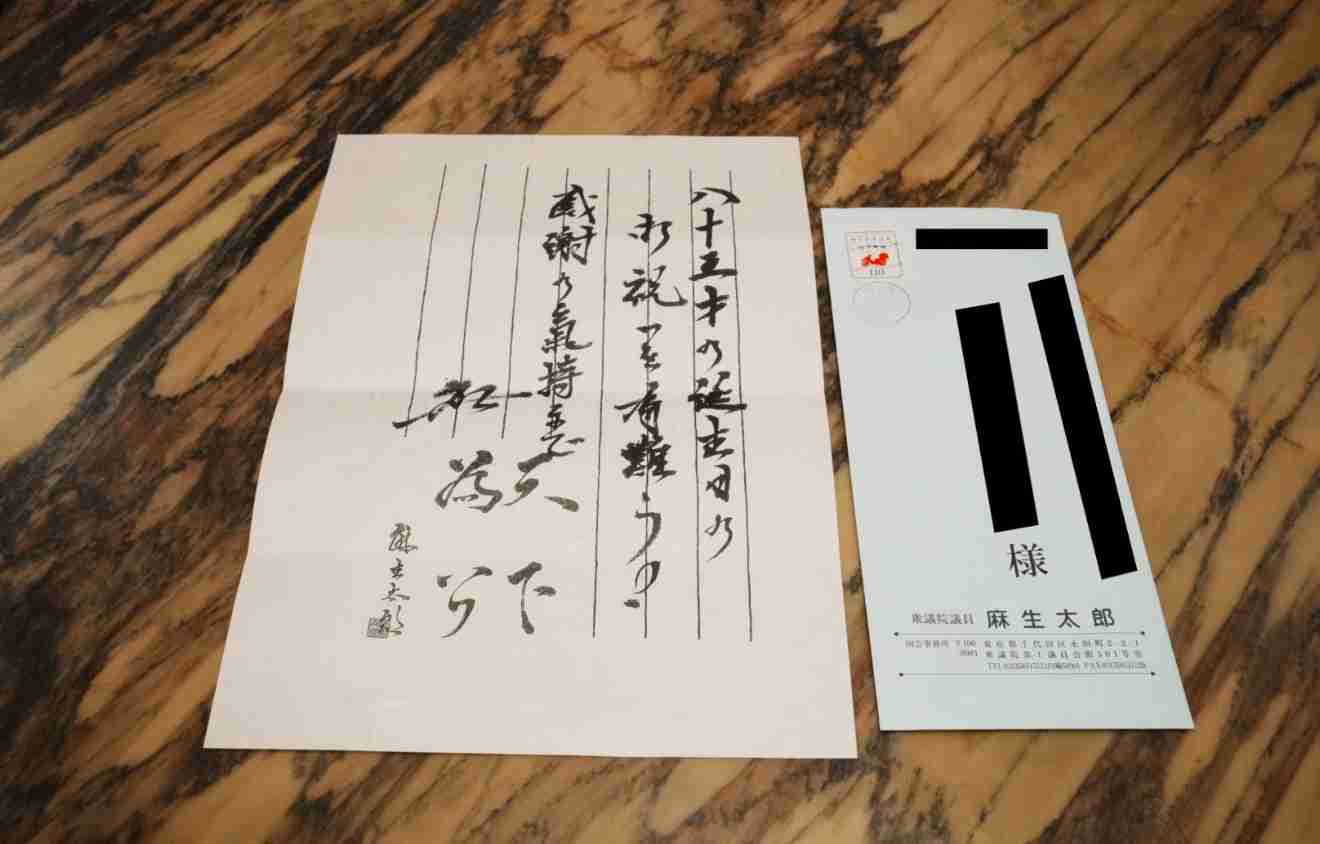 八十五才の誕生日の
御祝いを有難うの
感謝の氣持まで
天下
為公
麻生太郎
110
様
衆議院議員 麻生太郎
国会事務所 〒100
8981
東京都千代田区永田町2-2-1
衆議院第1議員会館301号室